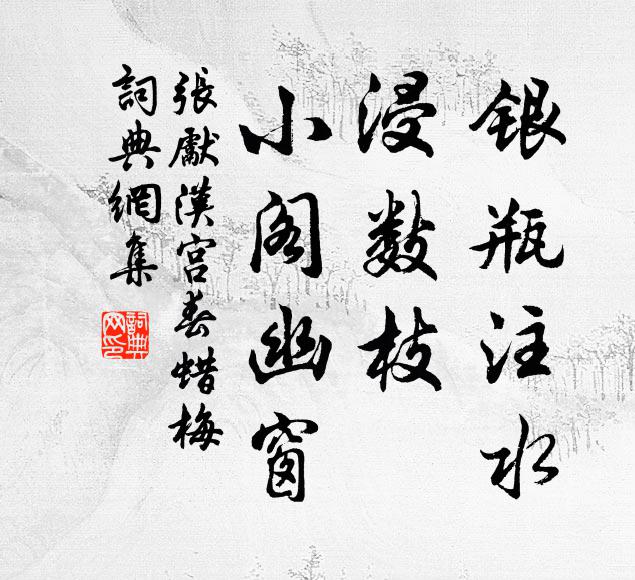 銀瓶注水
浸數枝
小閣幽窗
張獻漢宮春蜡梅
詞典網集
詞典網印